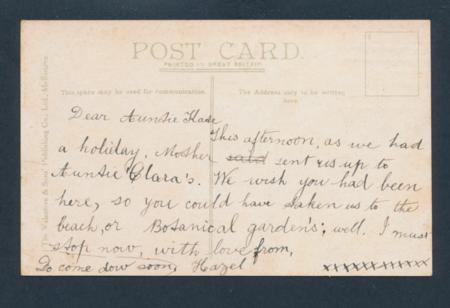 POST CARD.
PRINTED IN GREAT BRITAIN
This space may be used for communication.
The Address only to be written
here.
Valentine & Sons' Publishing Co., Ltd., Melbourne
Dear Auntie
This afternoon, as we had
a holiday, Mother said sent us up to
Auntie Clara's. We wish you had been
here, so you could have taken us to the
beach, or Botanical garden's; well. I must
stop now, with love from,
Do come dow soon, Hazel
xxxxxxxxxxxx